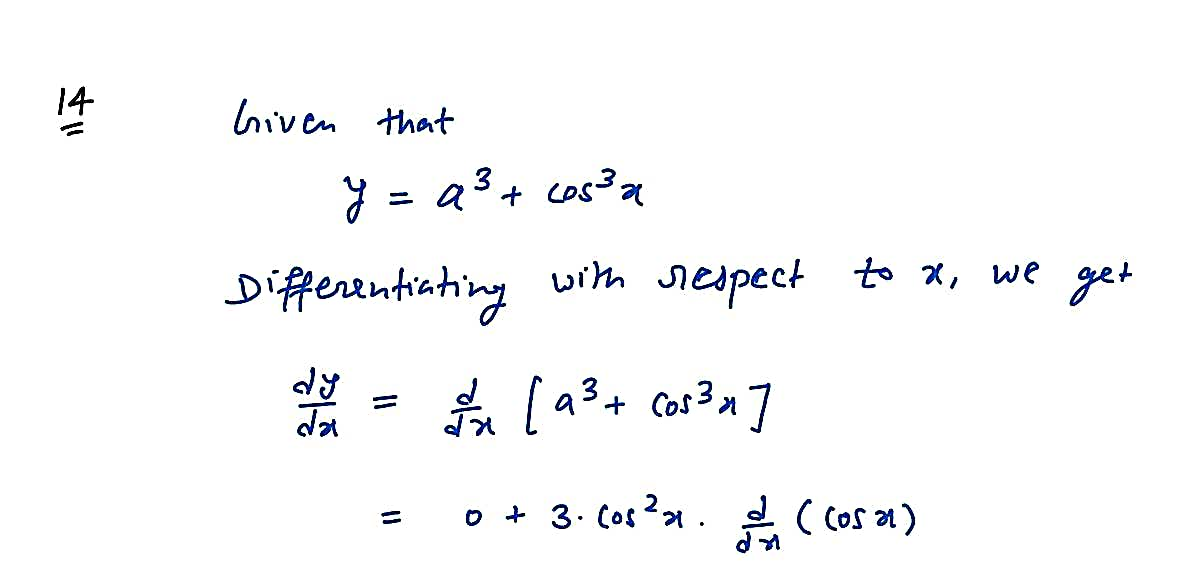 14 Given that
y = a³ + cos³x
Differentiating with respect to x, we get
dy/dx = d/dx [a³ + cos³x]
= 0 + 3·cos²x · d/dx (cos x)